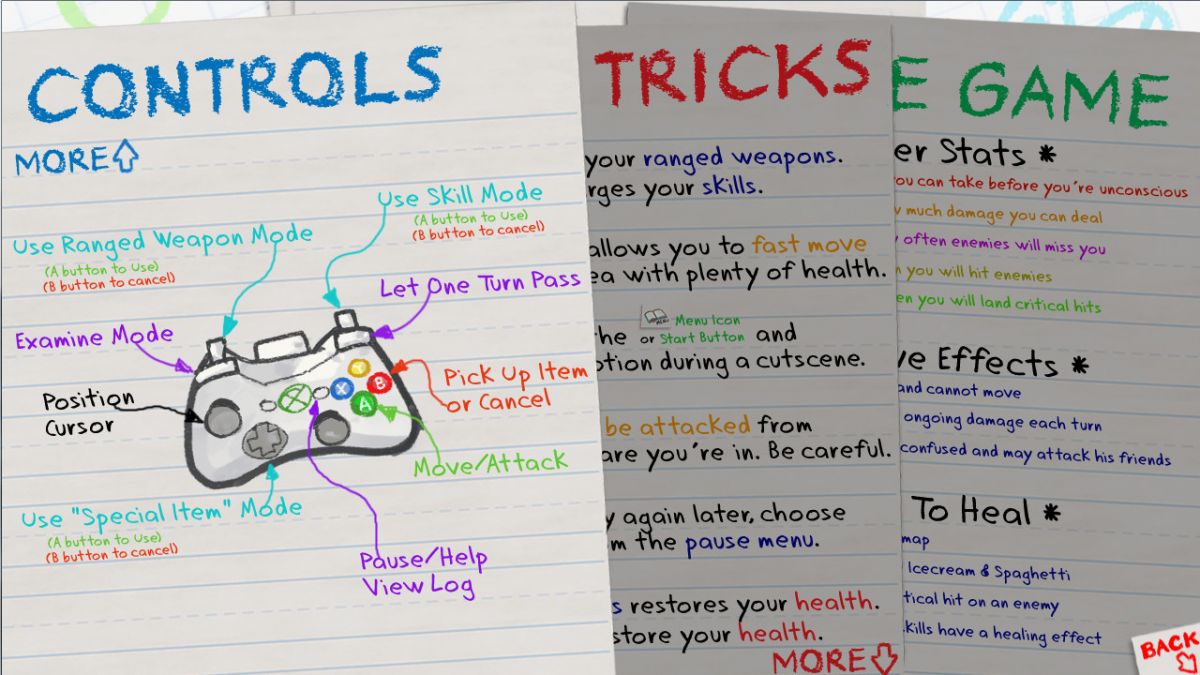 CONTROLS
MORE
Use Skill Mode
(A button to Use)
(B button to cancel)
Use Ranged Weapon Mode
(A button to Use)
(B button to cancel)
Let One Turn Pass
Examine Mode
Position
Cursor
Y
X
B
A
Pick Up Item
or Cancel
Move/Attack
Use "Special Item" Mode
(A button to Use)
(B button to cancel)
Pause/Help
View Log
TRICKS
your ranged weapons.
rges your skills.
allows you to fast move
ea with plenty of health.
he or Menu Icon
Start Button and
otion during a cutscene.
be attacked from
are you're in. Be careful.
y again later, choose
m the pause menu.
s restores your health.
store your health.
MORE
E GAME
er Stats *
you can take before you're unconscious
w much damage you can deal
y often enemies will miss you
n you will hit enemies
en you will land critical hits
ve Effects *
and cannot move
ongoing damage each turn
confused and may attack his friends
To Heal *
map
Icecream & Spaghetti
tical hit on an enemy
kills have a healing effect
BACK